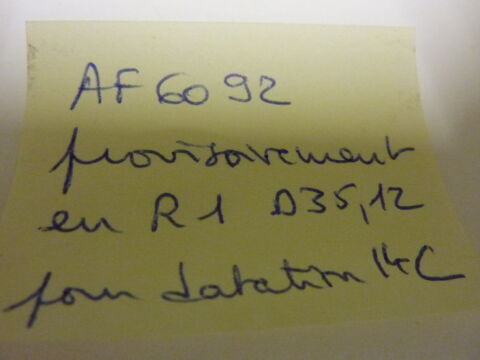 AF6092
provisoirement
en R1 D35,12
pour datation 14C